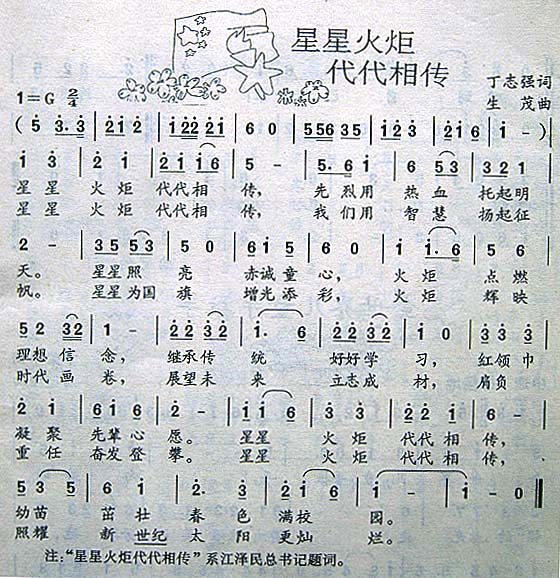 星星火炬
代代相传
丁志强词
1=G 2/4
生茂曲
( 5 3·3 | 2 1 2 | 1 22 2 1 | 6 0 | 5 56 3 5 | 1 2 3 | 2·1 6 1 | 1 - )
1 3 | 2 1 | 2 1 1 6 | 5 - | 5· 6 1 | 6 5 3 | 3 2 1 |
星星 火炬 代代相 传, 先烈用 热血 托起明
星星 火炬 代代相 传, 我们用 智慧 扬起征
2 - | 3 5 5 3 | 5 0 | 6 1 5 | 6 0 | 1 1·6 | 5 6 |
天。 星星照 亮 赤诚童 心, 火炬 点燃
帆。 星星为国 旗 增光添 彩, 火炬 辉映
5 2 3 2 | 1 - | 2 2 3 2 | 1· 6 | 2 2 3 2 | 1 0 | 3 3 3 |
理想信 念, 继承传 统 好好学 习, 红领巾
时代画 卷, 展望未 来 立志成 材, 肩负
2 1 | 6 1 6 | 2 - | 1 1 6 | 3 3 | 2 2 1 | 6 - |
凝聚 先辈心 愿。 星星 火炬 代代相 传,
重任 奋发登 攀。 星星 火炬 代代相 传,
5 3 5 | 6 1 | 2· 3 | 2 1 6 | 1 - | 1 - | 1 0 ‖
幼苗 茁壮 春色 满校 园。
照耀 新世纪 太阳 更灿 烂。
注:“星星火炬代代相传”系江泽民总书记题词。